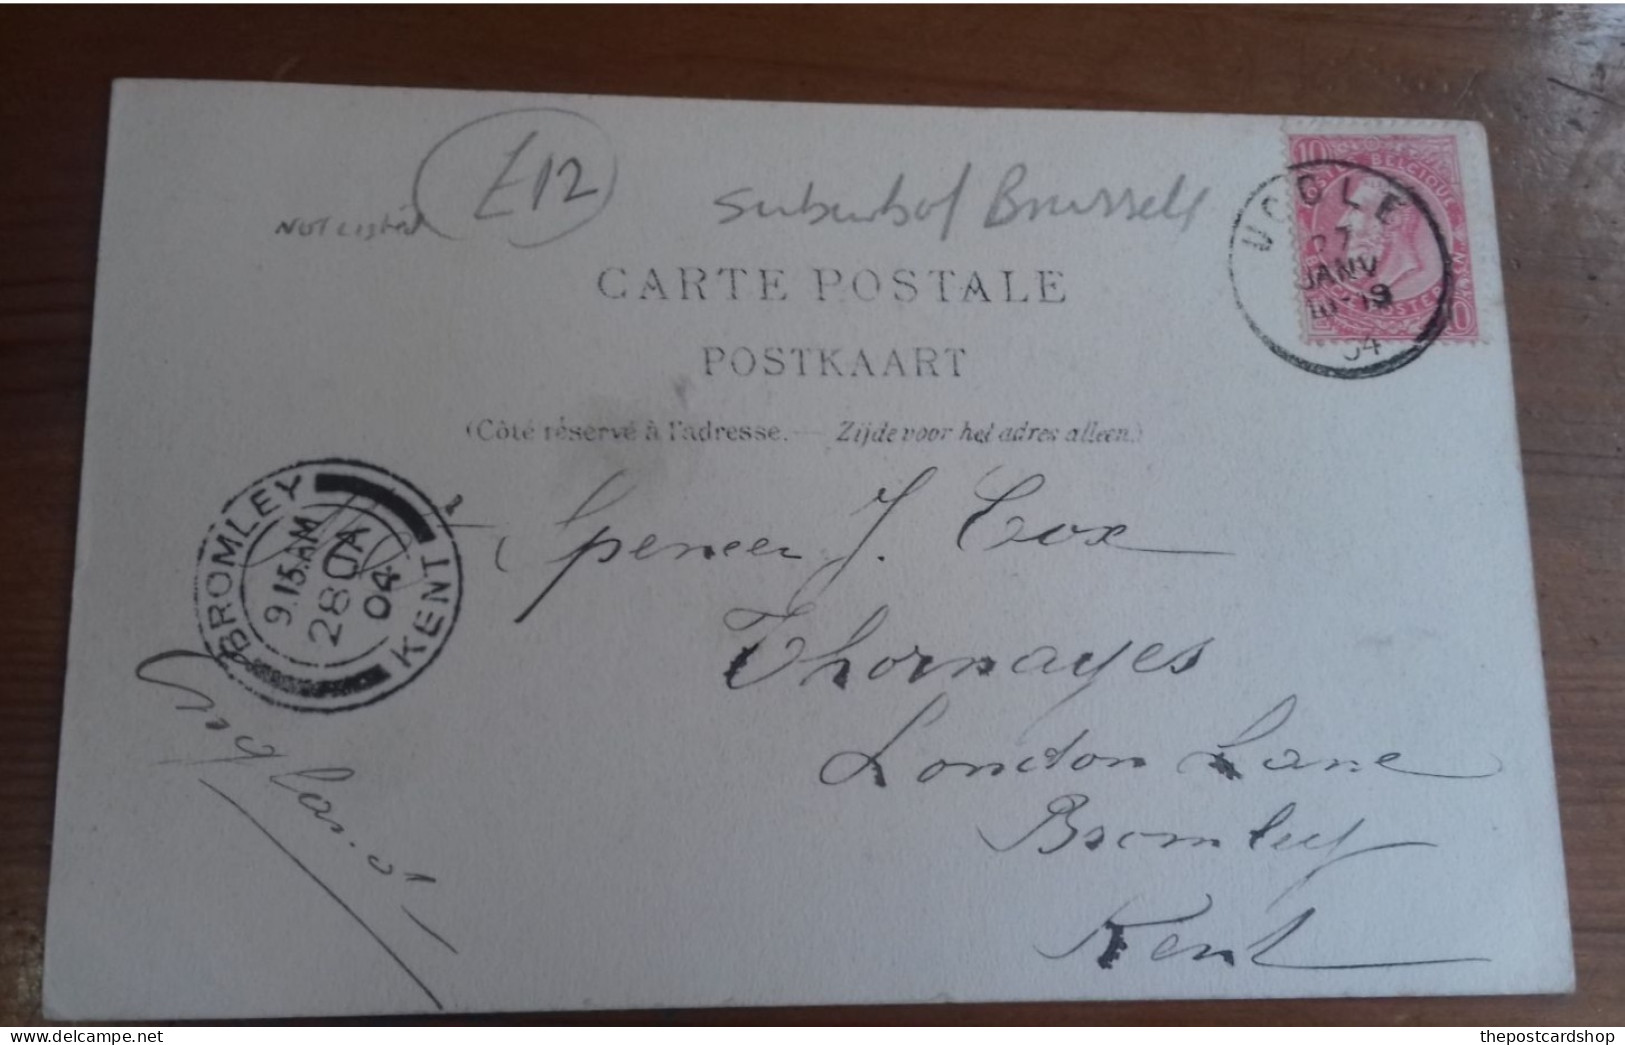 £12
NOT LISTED
suburb of Brussels
CARTE POSTALE
POSTKAART
(Côté réservé à l'adresse. — Zijde voor het adres alleen.)
10 POSTERIJEN BELGIQUE 10
UCCLE
27
JANV
04
BROMLEY
9.15 AM
28 JA
04
KENT
Spencer J. Cox
Thornayes
London Lane
Bromley
Kent
England
thepostcardshop